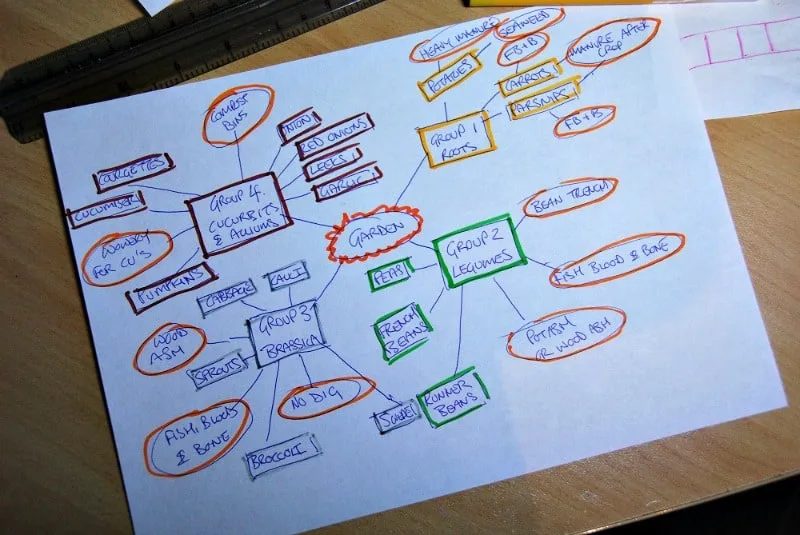 HEAVY MANURE
SEAWEED
FB+B
MANURE AFTER
CROP
POTATOES
CARROTS
PARSNIPS
FB+B
GROUP 1
ROOTS
COMPOST
BINS
ONION
RED ONIONS
LEEKS
GARLIC
COURGETTES
CUCUMBER
GROUP 4
CUCURBITS
& ALLIUMS
FOR CU'S
PUMPKINS
GARDEN
GROUP 2
LEGUMES
BEAN TRENCH
FISH BLOOD & BONE
POTASH
OR WOOD ASH
PEAS
FRENCH
BEANS
RUNNER
BEANS
CABBAGE
CAULI
GROUP 3
BRASSICA
WOOD
ASH
SPROUTS
NO DIG
FISH, BLOOD
& BONE
BROCCOLI